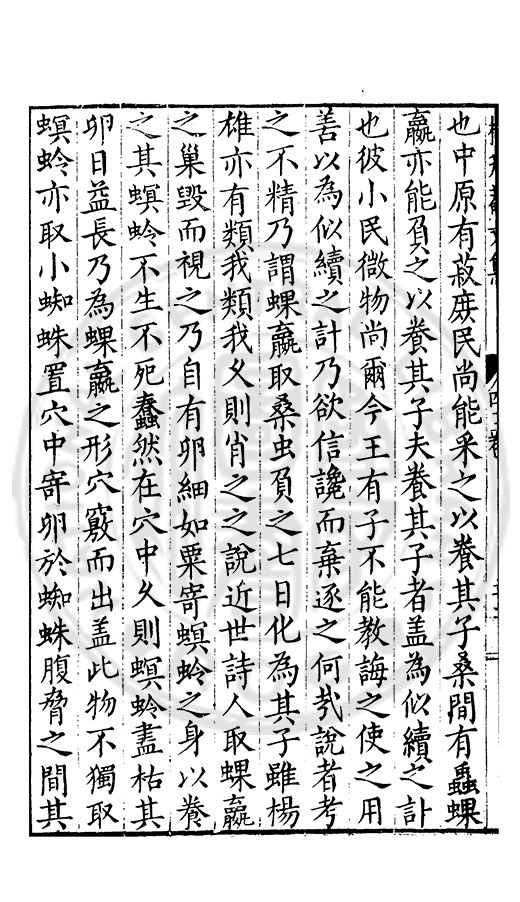 也中原有菽庶民尚能采之以養其子桑間有蟲蜾
蠃亦能負之以養其子夫養其子者盖為似續之計
也彼小民微物尚爾今王有子不能教誨之使之用
善以為似續之計乃欲信讒而棄逐之何㢤說者考
之不精乃謂蜾蠃取桑虫負之七日化為其子雖楊
雄亦有類我類我久則肖之之說近世詩人取蜾蠃
之巢毀而視之乃自有卵細如粟寄螟蛉之身以養
之其螟蛉不生不死蠢然在穴中久則螟蛉盡枯其
卵日益長乃為蜾蠃之形穴竅而出盖此物不獨取
螟蛉亦取小蜘蛛置穴中寄卵於蜘蛛腹脅之間其